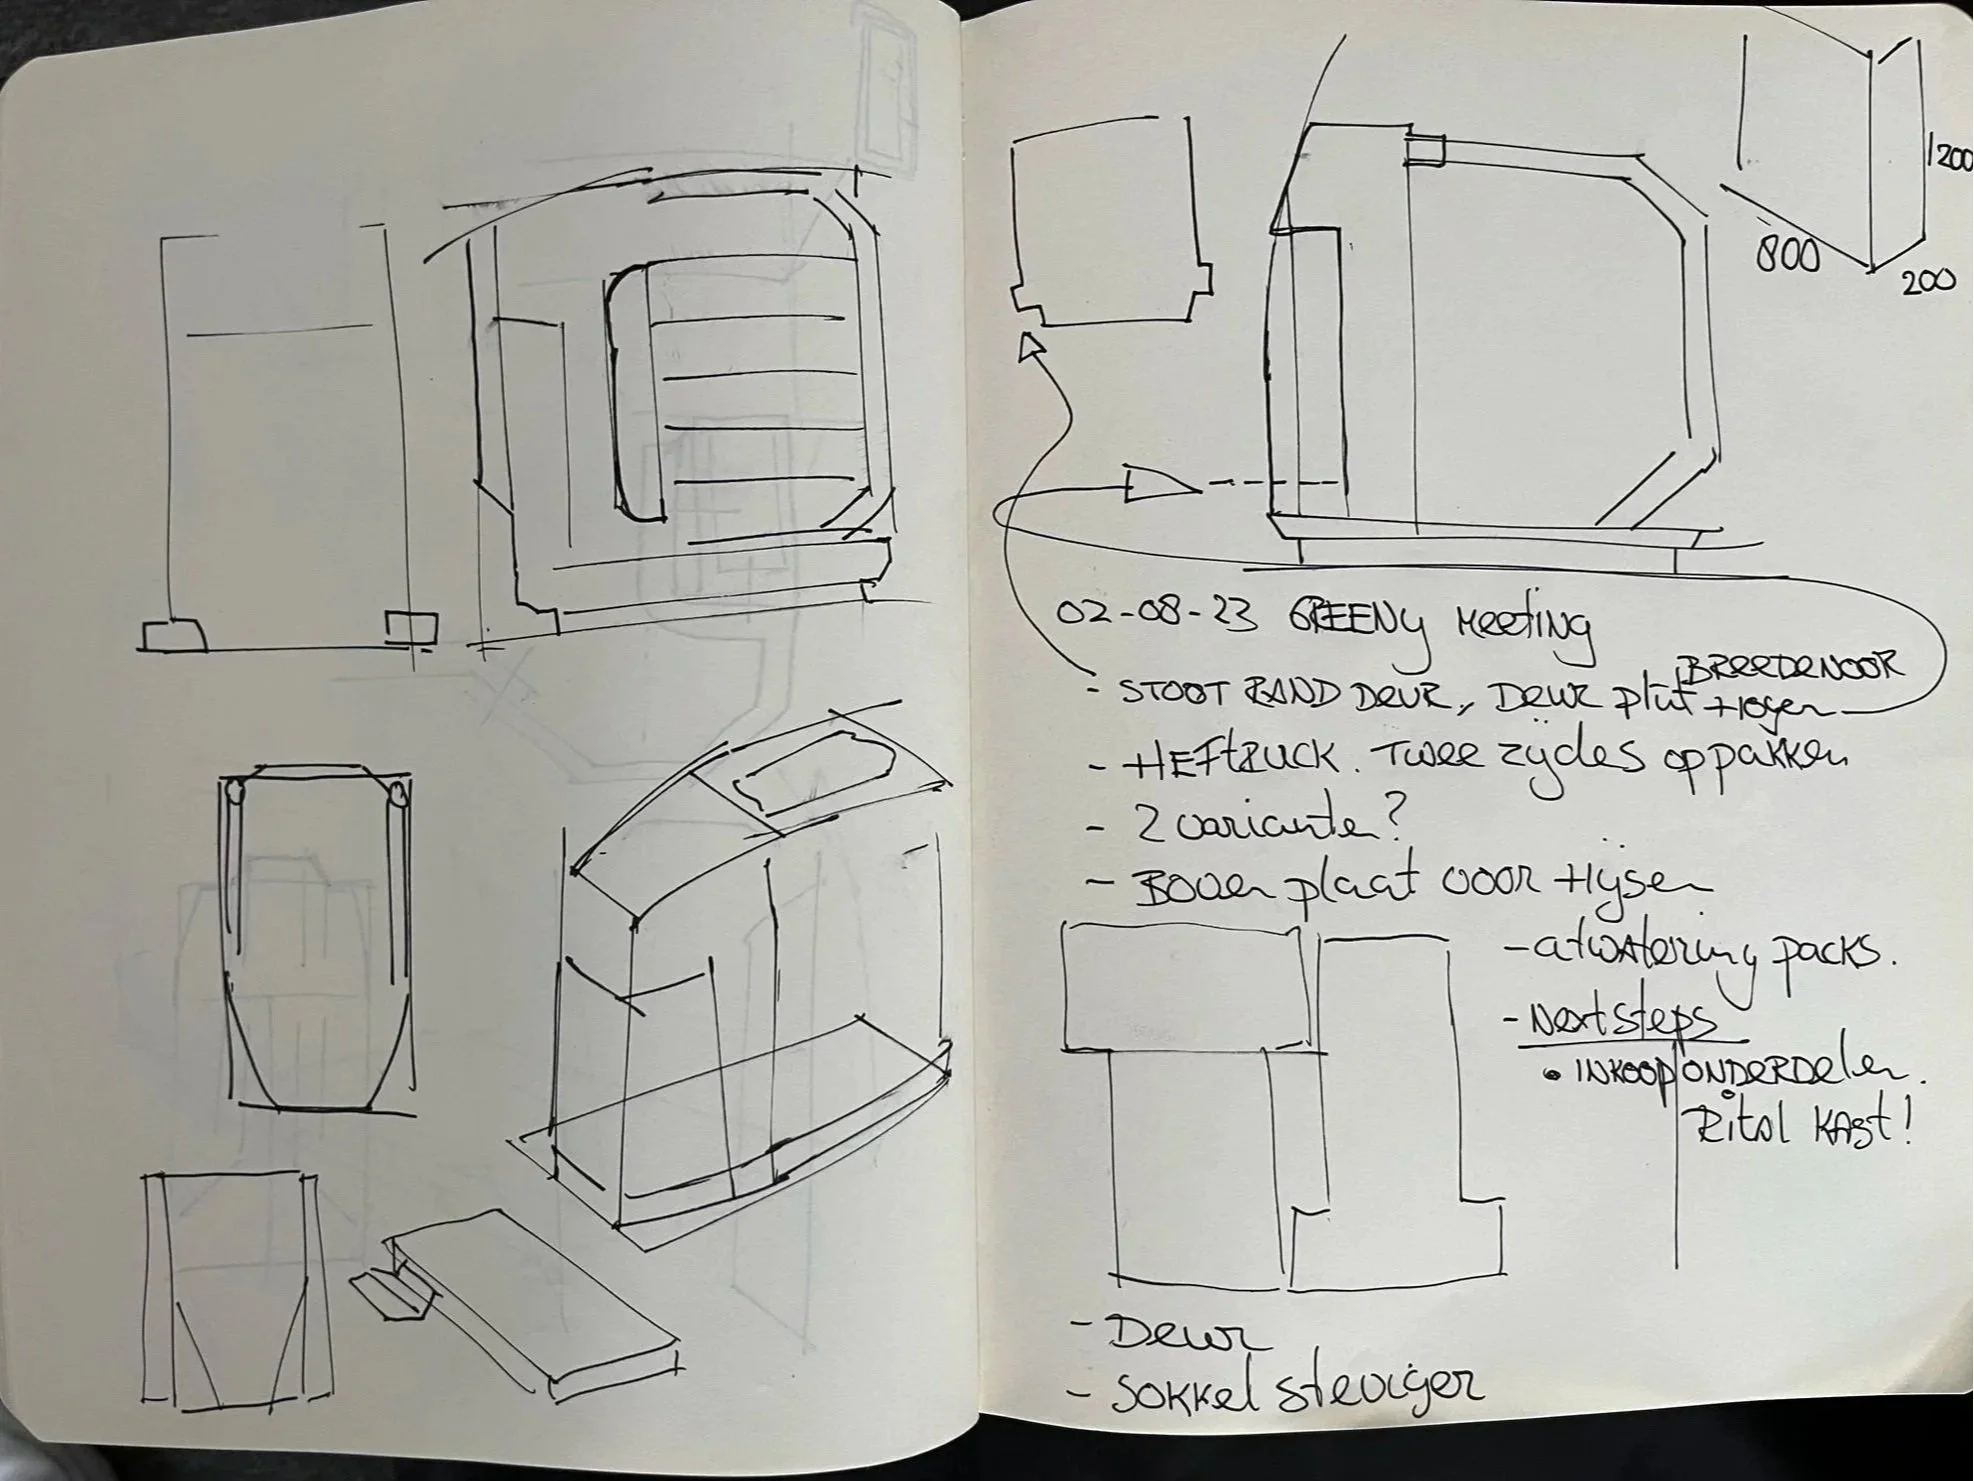 1200
800
200
02-08-23 GREENy Meeting
BREEDENOOR
- STOOT RAND DEUR, DEUR plint Hoger
- HEFTRUCK. Twee zijdes oppakken
- 2 variante?
- BOVEN plaat voor Hijsen
- afwatering packs.
- Next steps
• INKOOP ONDERDELEN.
Rital KAST!
- Deur
- SOKKEL steviger